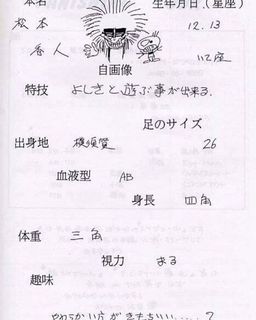 本名 生年月日(星座)
松本 12.13
秀人 いて座
自画像
特技 よしきと遊ぶ事が出来る。
足のサイズ
出身地 横須賀 26
血液型 AB
身長 四角
体重 三角
視力 まる
趣味
やわらかい方がきもちいい....?